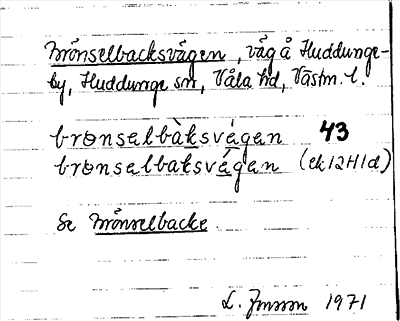 Brönselbacksvägen, väg å Huddunge-
by, Huddunge sn, Våla hd, Västm. l.
brɵnsəlbàksvä́gən 43
brɵnsəlbaksvä́gən (ek 12H1d)
Se Brönselbacke
L. Jonsson 1971